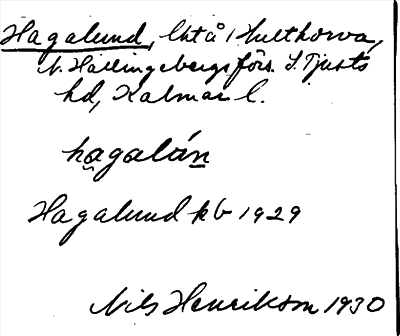 Hagalund, lht å Hulthorva,
V. Hallingebergs förs. S. Tjusts
hd, Kalmar l.
hagalún
Hagalund kb 1929
Nils Henrikson 1930